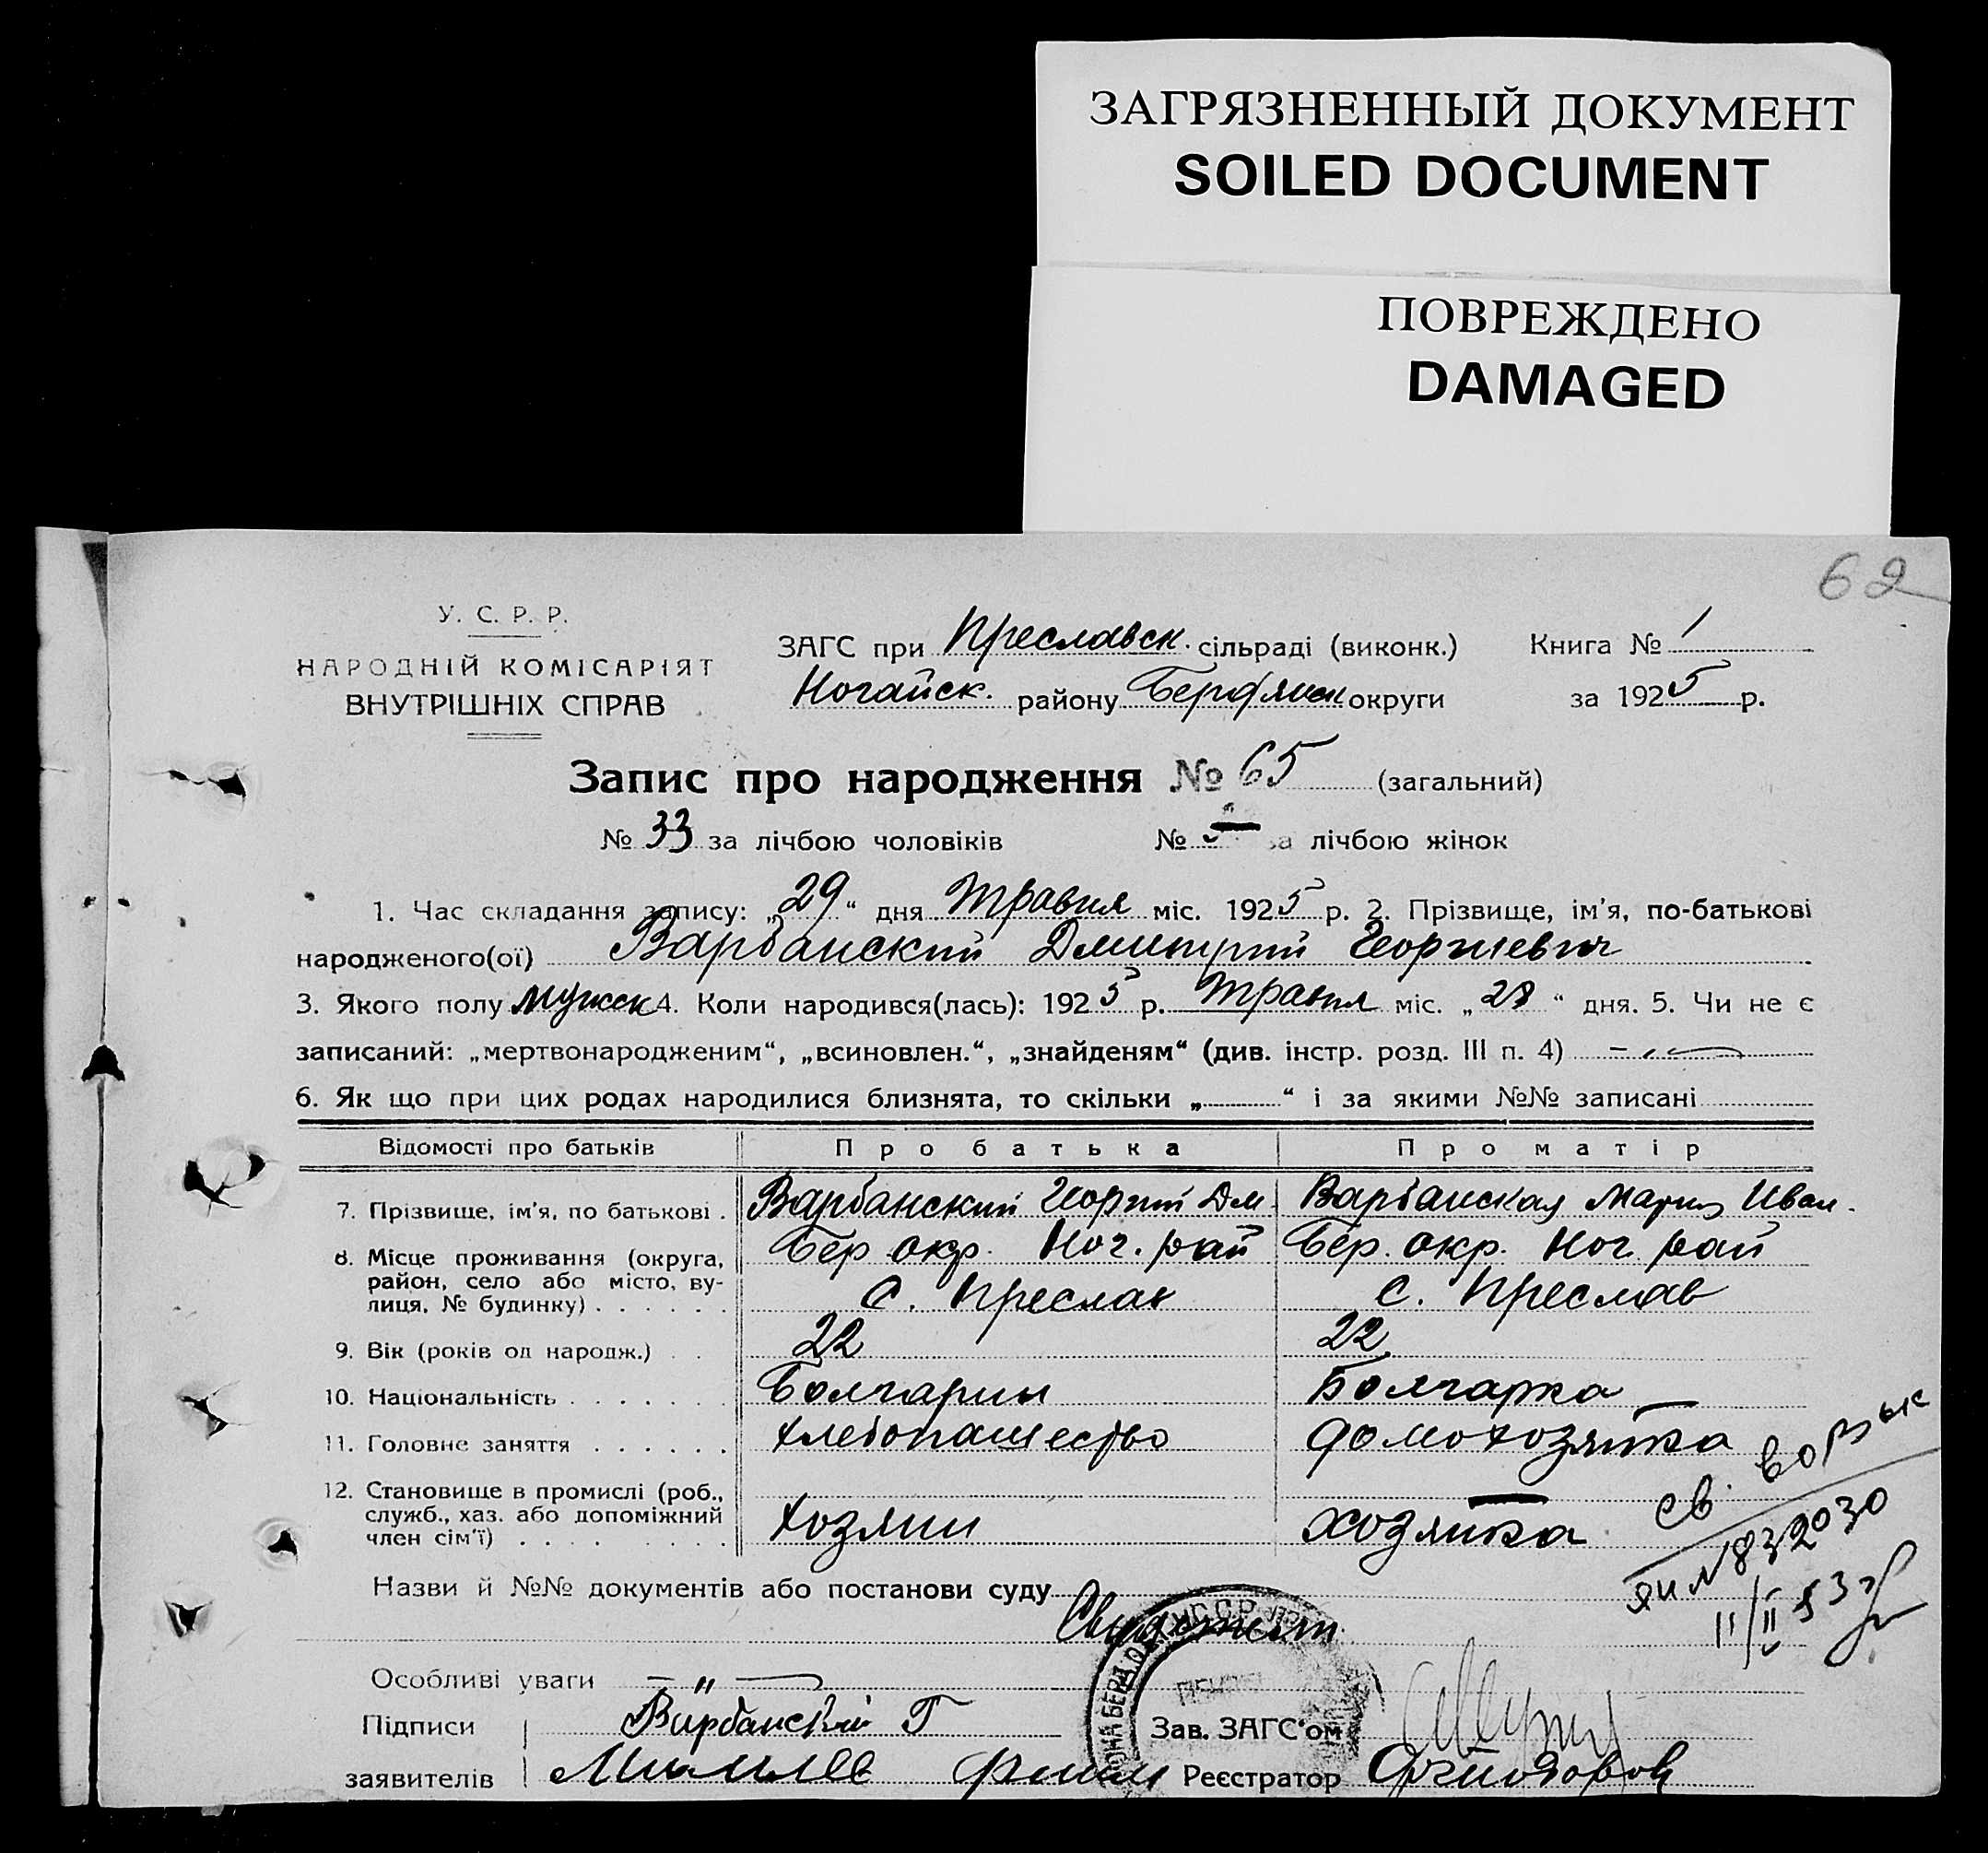 ЗАГРЯЗНЕННЫЙ ДОКУМЕНТ
SOILED DOCUMENT
ПОВРЕЖДЕНО
DAMAGED
62
У. С. Р. Р.
НАРОДНІЙ КОМІСАРІЯТ
ВНУТРІШНІХ СПРАВ
ЗАГС при Преславск. сільраді (виконк.) Книга № 1
Ногайск. району Бердянск округи за 1925 р.
Запис про народження № 65 (загальний)
№ 33 за лічбою чоловіків № за лічбою жінок
1. Час складання запису: „29“ дня Травня міс. 1925 р. 2. Прізвище, ім'я, по-батькові
народженого(ої) Варбанский Дмитрий Георгиевич
3. Якого полу мужск 4. Коли народився(лась): 1925 р. Травня міс. „28“ дня. 5. Чи не є
записаний: „мертвонародженим“, „всиновлен.“, „знайденям“ (див. інстр. розд. III п. 4)
6. Як що при цих родах народилися близнята, то скільки „ “ і за якими №№ записані
Відомості про батьків Про батька Про матір
7. Прізвище, ім'я, по батькові . Варбанский Георгий Дм. Варбанская Мария Иван.
8. Місце проживання (округа, район, село або місто, вулиця, № будинку) . . . . . . Бер окр. Ног. рай с. Преслав Бер. окр. Ног. рай с. Преслав
9. Вік (років од народж.) . . 22 22
10. Національність . . . . . . . Болгарин Болгарка
11. Головне заняття . . . . . . хлебопашество домохозяйка
12. Становище в промислі (роб., служб., хаз. або допоміжний член сім'ї) . . . . . . . . хозяин хозяйка
св. ворзык
ЯИ № 832030
11/II 53
Назви й №№ документів або постанови суду
Особливі уваги — " —
Підписи Варбанский Г Зав. ЗАГС'ом
заявителів Реєстратор